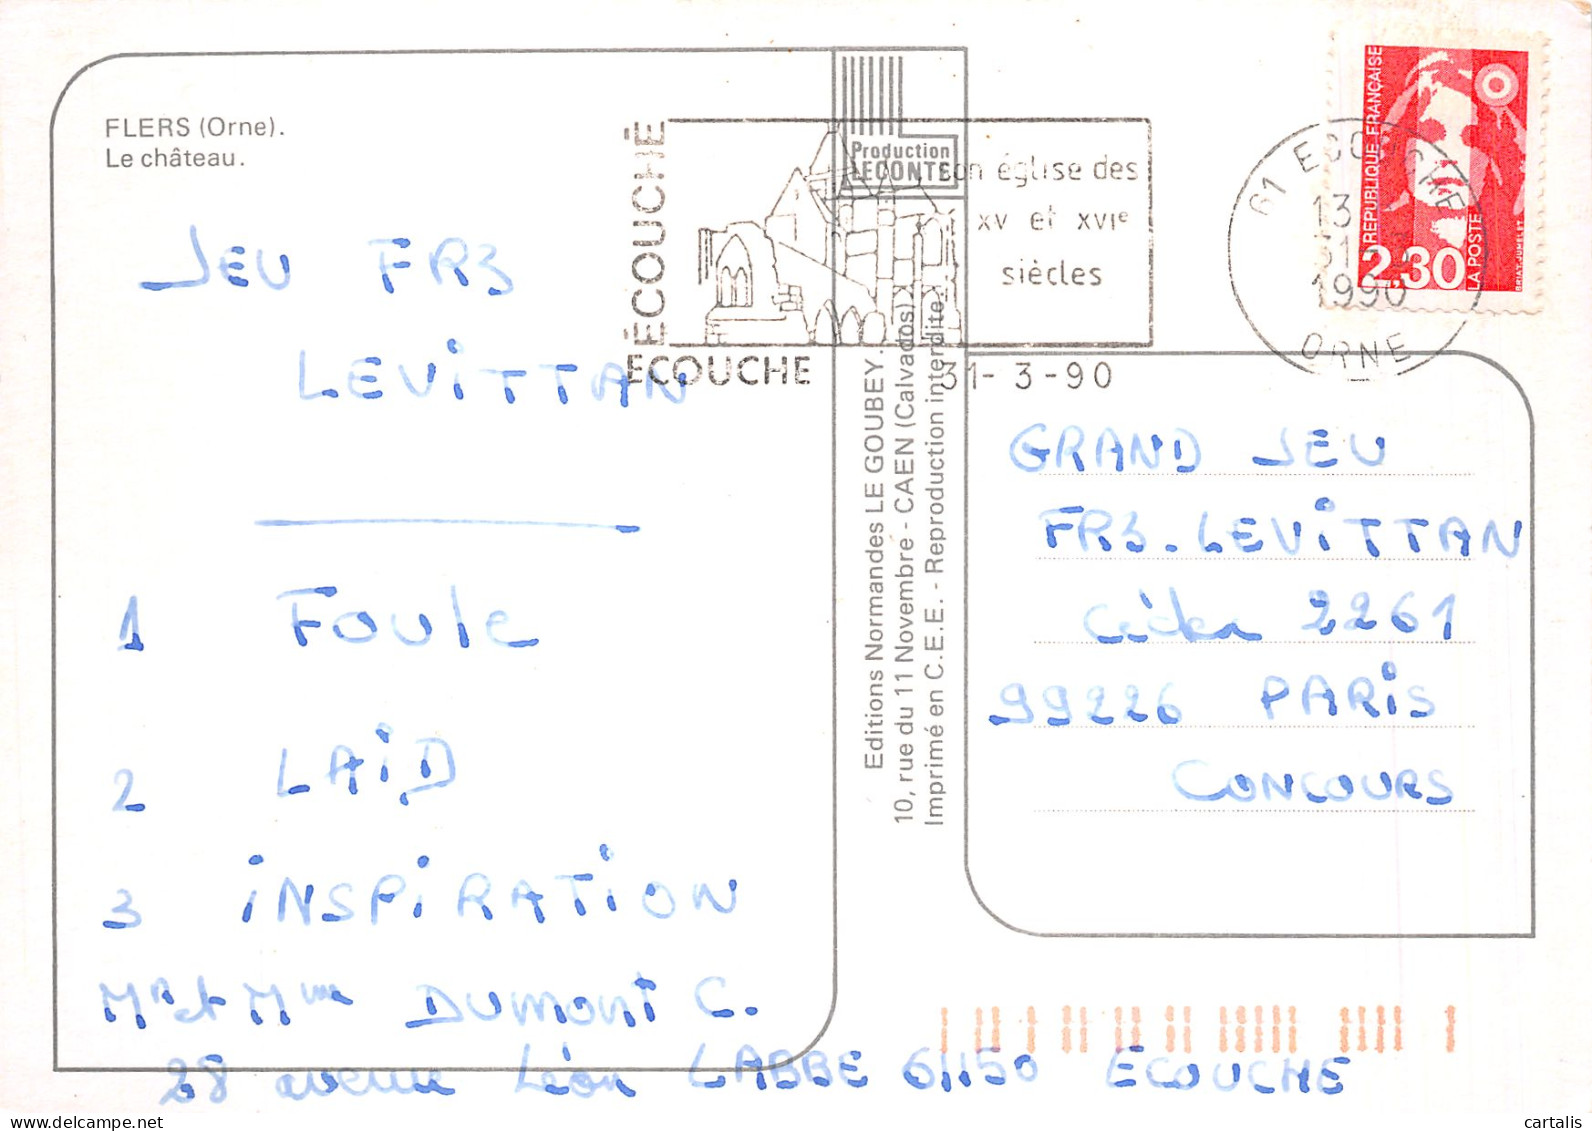 FLERS (Orne).
Le château.
JEU FR3
LEVITTAN
1 FOULE
2 LAID
3 INSPIRATION
Mr et Mme DUMONT C.
28 avenue Léon LABBE 61150 ECOUCHE
ÉCOUCHÉ
ECOUCHE
son église des
XV et XVIe
siècles
31-3-90
Production
LECONTE
Editions Normandes LE GOUBEY.
10, rue du 11 Novembre - CAEN (Calvados)
Imprimé en C.E.E. - Reproduction interdite
61 ECOUCHE
13
31
1990
ORNE
REPUBLIQUE FRANÇAISE
2,30
LA POSTE
BRIAT-JUMELET
GRAND JEU
FR3. LEVITTAN
Cédex 2261
99226 PARIS
CONCOURS
delcampe.net
cartalis